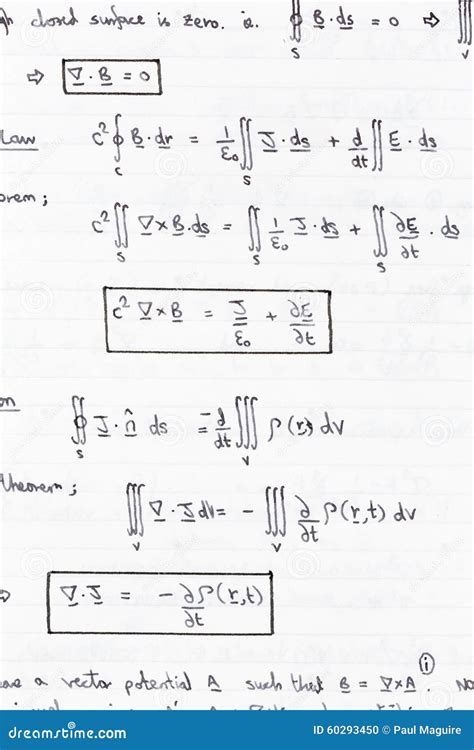 closed surface is zero. ie. ∯_S B·ds = 0 ⇒ ∭_V
⇒ ∇·B = 0
Law c² ∮_C B·dr = 1/ε₀ ∬_S J·ds + d/dt ∬ E·ds
orem;
c² ∬_S ∇×B·ds = ∬_S 1/ε₀ J·ds + ∬_S ∂E/∂t · ds
c² ∇×B = J/ε₀ + ∂E/∂t
on
∯_S J·n̂ ds = -d/dt ∭_V ρ(r) dV
theorem;
∭_V ∇·J dV = - ∭_V ∂/∂t ρ(r,t) dV
⇒ ∇·J = -∂ρ(r,t)/∂t
a vector potential A such that B = ∇×A (i). No
dreamstime.com
ID 60293450 © Paul Maguire